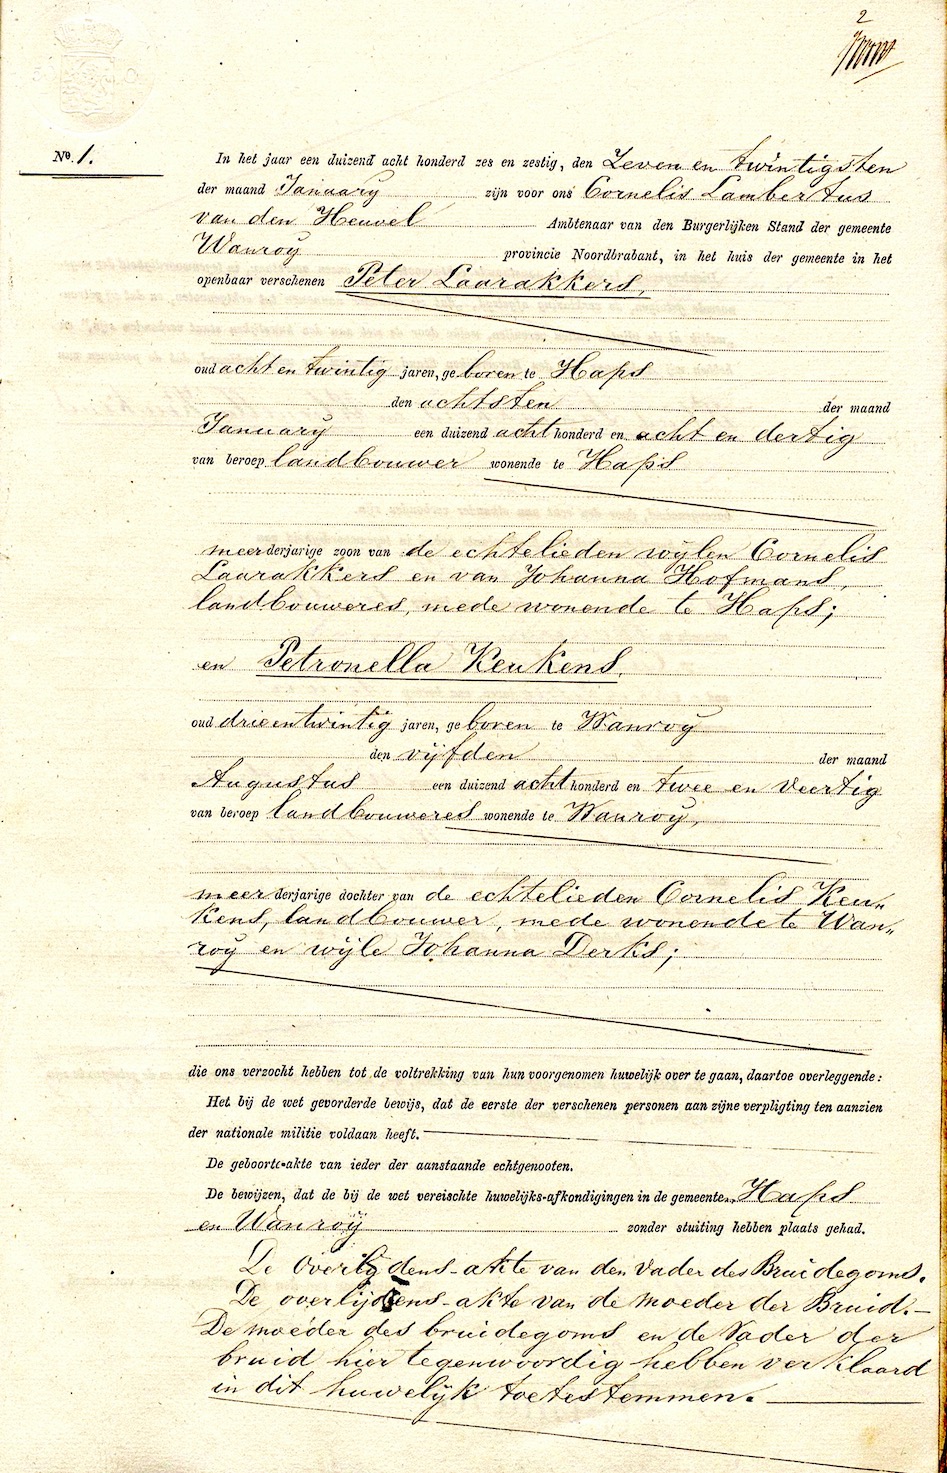 2
No. 1.
In het jaar een duizend acht honderd zes en zestig, den Zeven en twintigsten
der maand January zijn voor ons Cornelis Lambertus
van den Heuvel Ambtenaar van den Burgerlijken Stand der gemeente
Wanroy provincie Noordbrabant, in het huis der gemeente in het
openbaar verschenen Peter Laarakkers,
oud acht en twintig jaren, geboren te Haps
den achtsten der maand
January een duizend acht honderd en acht en dertig
van beroep landbouwer wonende te Haps
meerderjarige zoon van de echtelieden wijlen Cornelis
Laarakkers en van Johanna Hofmans,
landbouweres, mede wonende te Haps;
en Petronella Keukens,
oud drie en twintig jaren, geboren te Wanroy
den vijfden der maand
Augustus een duizend acht honderd en twee en veertig
van beroep landbouweres wonende te Wanroy,
meerderjarige dochter van de echtelieden Cornelis Keu„
kens, landbouwer, mede wonende te Wan„
roy en wijle Johanna Derks;
die ons verzocht hebben tot de voltrekking van hun voorgenomen huwelijk over te gaan, daartoe overleggende:
Het bij de wet gevorderde bewijs, dat de eerste der verschenen personen aan zijne verpligting ten aanzien
der nationale militie voldaan heeft.
De geboorte-akte van ieder der aanstaande echtgenooten.
De bewijzen, dat de bij de wet vereischte huwelijks-afkondigingen in de gemeente Haps
en Wanroÿ zonder stuiting hebben plaats gehad.
De Overlydens-akte van den Vader des Bruidegoms.
De overlijdens-akte van de Moeder der Bruid.—
De moeder des bruidegoms en de Vader der
bruid hier tegenwoordig hebben verklaard
in dit huwelijk toetestemmen.